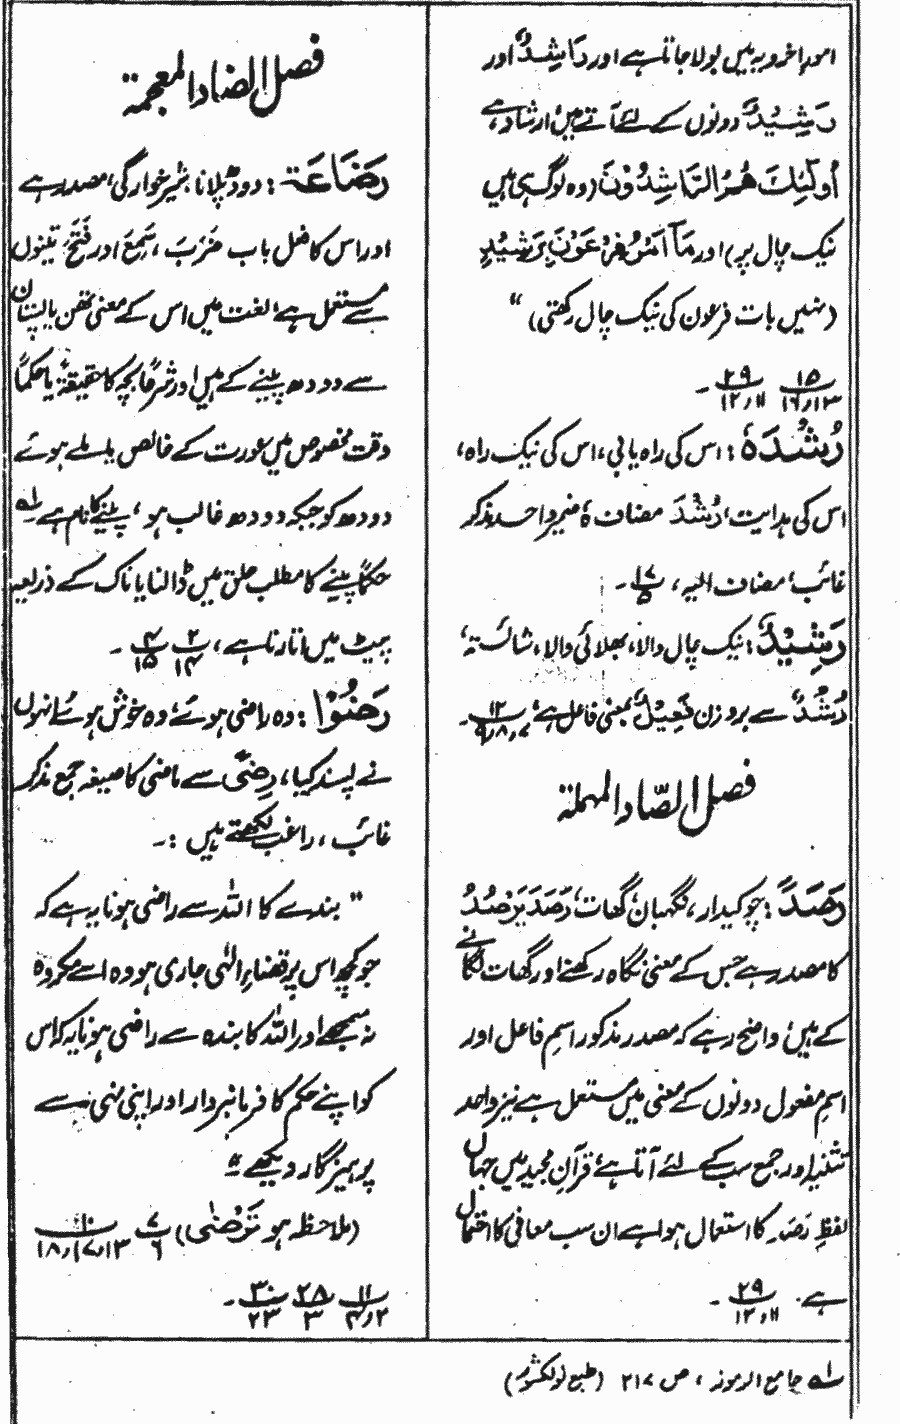 امور اخرویہ میں بولا جاتا ہے اور رَاشِدٌ اور
رَشِیْدٌ دونوں کے لئے آتے ہیں، ارشاد ہے،
اُولٰٓئِکَ ھُمُ الرَّاشِدُوْنَ (وہ لوگ ہی ہیں
نیک چال پر) اور مَآ اَمْرُ فِرْعَوْنَ بِرَشِیْدٍ
(نہیں بات فرعون کی نیک چال رکھتی) "
۱۵/۱۶،۱۳ ۲۹/۱۲،۱۱ ۔
رُشْدَہٗ : اس کی راہ یابی، اس کی نیک راہ،
اس کی ہدایت، رُشْدَ مضاف ہٗ ضمیر واحد مذکر
غائب، مضاف الیہ، ۱۷/۵ ۔
رَشِیْدٌ : نیک چال والا، بھلائی والا، شائستہ،
رُشْدٌ سے بروزن فَعِیْلٌ بمعنی فاعل ہے، ۱۲/۹،۸،۷ ۔
فصل الصّاد المہملۃ
رَصَدًا : چوکیدار، نگہبان، گھات، رَصَدَ یَرْصُدُ
کا مصدر ہے جس کے معنی نگاہ رکھنے اور گھات لگانے
کے ہیں، واضح رہے کہ مصدر مذکور اسم فاعل اور
اسم مفعول دونوں کے معنی میں مستعمل ہے نیز واحد
تثنیہ اور جمع سب کے لئے آتا ہے، قرآن مجید میں جہاں
لفظ رَصَد کا استعمال ہوا ہے ان سب معانی کا احتمال
ہے۔ ۲۹/۱۲،۱۱ ۔
فصل الضاد المعجمۃ
رَضَاعَۃَ : دودھ پلانا، شیرخوارگی، مصدر ہے
اور اس کا فعل باب ضَرَبَ، سَمِعَ اور فَتَحَ تینوں
سے مستعمل ہے، لغت میں اس کے معنی تھن یا پستان
سے دودھ پینے کے ہیں اور شرعًا بچہ کا حقیقۃً یا حکمًا
وقت مخصوص میں عورت کے خالص یا ملے ہوئے
دودھ کو جبکہ دودھ غالب ہو، پینے کا نام ہے لہ
حکمًا پینے کا مطلب حلق میں ڈالنا یا ناک کے ذریعہ
پیٹ میں اتارنا ہے، ۲/۱۴ ۴/۱۵ ۔
رَضُوْا : وہ راضی ہوئے، وہ خوش ہوئے انہوں
نے پسند کیا، رِضًی سے ماضی کا صیغہ جمع مذکر
غائب، راغب لکھتے ہیں :۔
" بندے کا اللہ سے راضی ہونا یہ ہے کہ
جو کچھ اس پر قضاء الٰہی جاری ہو وہ اسے مکروہ
نہ سمجھے اور اللہ کا بندہ سے راضی ہونا یہ کہ اس
کو اپنے حکم کا فرمانبردار اور اپنی نہی سے
پرہیزگار دیکھے "
(ملاحظہ ہو تَرْضٰی) ۷/۶ ۱۰/۱۸،۱۷،۱۳
۱۱/۴،۲ ۲۸/۳ ۳۰/۲۳ ۔
لہ جامع الرموز، ص ۲۱۷ (طبع نولکشور)